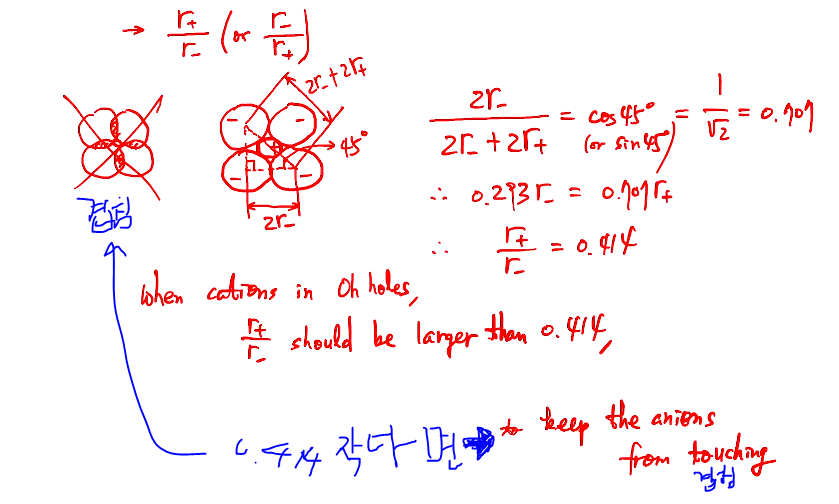 → r₊/r₋ (or r₋/r₊)
2r₋+2r₊
− −
− −
45°
2r₋
겹침
2r₋/(2r₋+2r₊) = cos45° (or sin45°) = 1/√2 = 0.707
∴ 0.293r₋ = 0.707r₊
∴ r₊/r₋ = 0.414
When cations in Oh holes,
r₊/r₋ should be larger than 0.414,
0.414 작다면 → to keep the anions
from touching
겹침